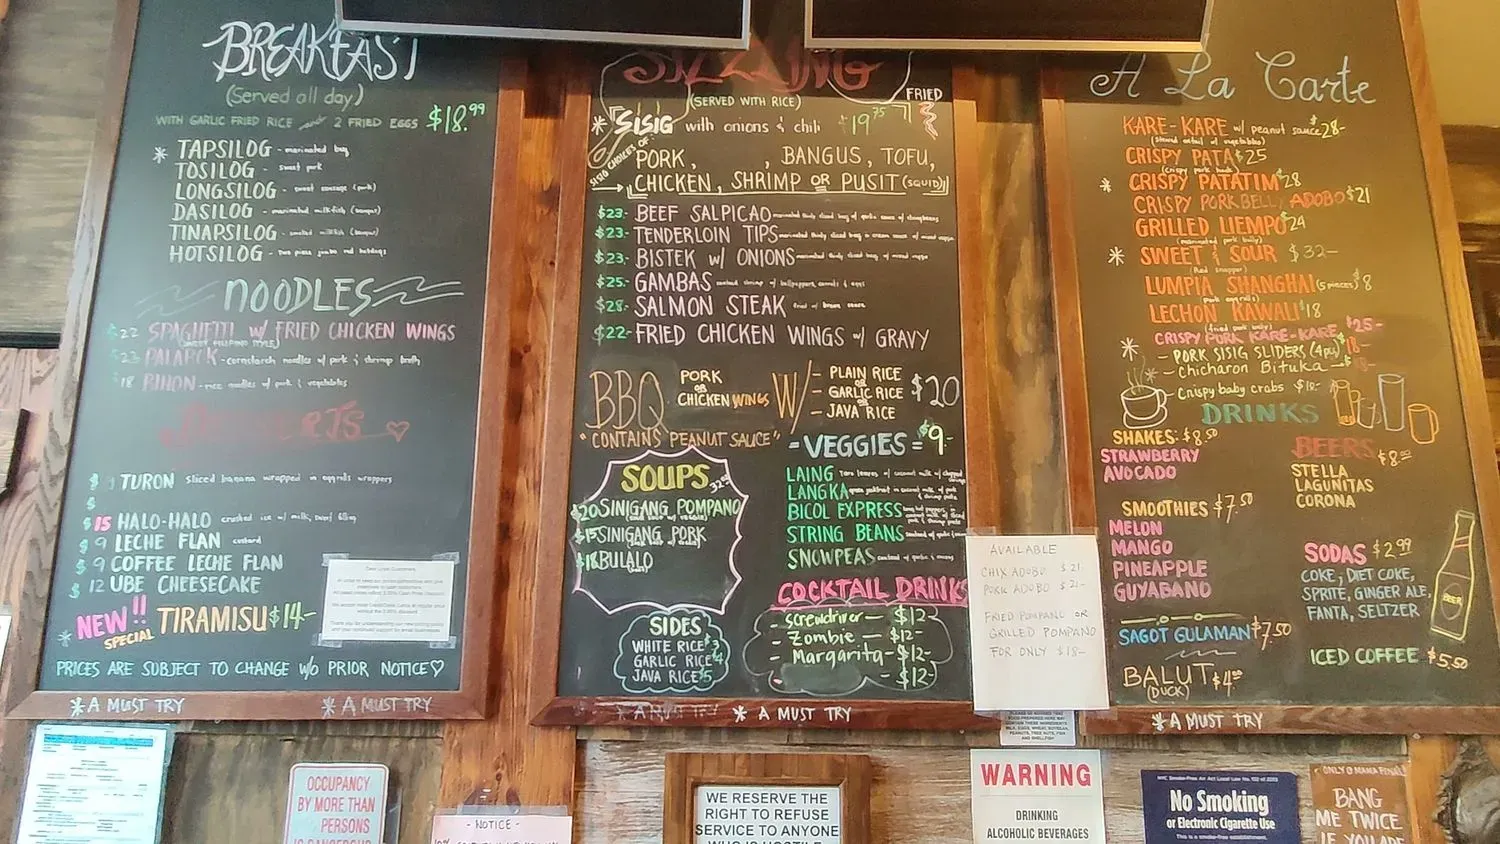 BREAKFAST
(Served all day)
WITH GARLIC FRIED RICE and 2 FRIED EGGS $18.99
* TAPSILOG - marinated beef
TOSILOG - sweet pork
LONGSILOG - sweet sausage (pork)
DASILOG - marinated milkfish (bangus)
TINAPSILOG - smoked milkfish (bangus)
HOTSILOG - two piece jumbo red hotdogs
NOODLES
$22 SPAGHETTI w/ FRIED CHICKEN WINGS
(SWEET FILIPINO STYLE)
$23 PALABOK - cornstarch noodles w/ pork & shrimp broth
$18 BIHON - rice noodles w/ pork & vegetables
DESSERTS
$ TURON sliced banana wrapped in eggrolls wrappers
$
$15 HALO-HALO crushed ice w/ milk,
$9 LECHE FLAN custard
$9 COFFEE LECHE FLAN
$12 UBE CHEESECAKE
NEW!! SPECIAL
* TIRAMISU $14-
PRICES ARE SUBJECT TO CHANGE w/o PRIOR NOTICE
* A MUST TRY * A MUST TRY
SIZZLING
(SERVED WITH RICE)
FRIED
* SISIG with onions & chili $19.75
SISIG CHOICES OF
PORK, , BANGUS, TOFU,
CHICKEN, SHRIMP OR PUSIT (SQUID)
$23- BEEF SALPICAO
$23- TENDERLOIN TIPS
$23- BISTEK w/ ONIONS
$25- GAMBAS
$28- SALMON STEAK
$22- FRIED CHICKEN WINGS w/ GRAVY
BBQ PORK OR CHICKEN WINGS W/
- PLAIN RICE
OR
- GARLIC RICE
OR
- JAVA RICE
$20
"CONTAINS PEANUT SAUCE"
SOUPS 32oz
$20 SINIGANG POMPANO
$15 SINIGANG PORK
$18 BULALO
SIDES
WHITE RICE $3
GARLIC RICE $4
JAVA RICE $5
= VEGGIES = $9-
LAING Taro leaves w/ coconut milk w/ chopped
LANGKA
BICOL EXPRESS
STRING BEANS
SNOWPEAS
COCKTAIL DRINKS
- screwdriver - $12-
- Zombie - $12-
- Margarita - $12-
- $12-
* A MUST TRY
AVAILABLE
CHIX ADOBO $21
PORK ADOBO $21-
FRIED POMPANO OR
GRILLED POMPANO
FOR ONLY $18-
A La Carte
KARE-KARE w/ peanut sauce $28-
CRISPY PATA $25
* CRISPY PATATIM $28
CRISPY PORK BELLY ADOBO $21
GRILLED LIEMPO $24
(marinated pork belly)
* SWEET & SOUR $32-
(Red snapper)
LUMPIA SHANGHAI (5 pieces) $8
(pork eggrolls)
LECHON KAWALI $18
(fried pork belly)
CRISPY PORK KARE-KARE $25-
* - PORK SISIG SLIDERS (4pcs) $18-
* - Chicharon Bituka - $18-
- Crispy baby crabs $10-
DRINKS
SHAKES: $8.50
STRAWBERRY
AVOCADO
SMOOTHIES $7.50
MELON
MANGO
PINEAPPLE
GUYABANO
SAGOT GULAMAN $7.50
BALUT $4.00
(DUCK)
BEERS $8.00
STELLA
LAGUNITAS
CORONA
SODAS $2.99
COKE, DIET COKE,
SPRITE, GINGER ALE,
FANTA, SELTZER
BEER
ICED COFFEE $5.50
* A MUST TRY
OCCUPANCY
BY MORE THAN
PERSONS
IS DANGEROUS
- NOTICE -
WE RESERVE THE
RIGHT TO REFUSE
SERVICE TO ANYONE
WHO IS HOSTILE
WARNING
DRINKING
ALCOHOLIC BEVERAGES
No Smoking
or Electronic Cigarette Use
This is a smoke-free establishment.
BANG
ME TWICE
IF YOU ARE